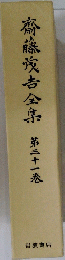 齋藤茂吉全集
第二十一巻
岩波書店